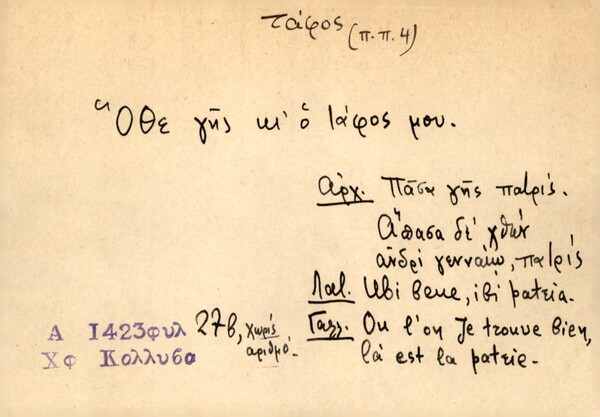 τάφος (π.π.4)
Ὅθε γῆς κι' ὁ τάφος μου.
Ἀρχ. Πᾶσα γῆς πατρίς.
Ἅπασα δέ χθὼν
ἀνδρί γενναίῳ, πατρίς
Λατ. Ubi bene, ibi patria.
Γαλλ. Ou l'on se trouve bien,
là est la patrie.
Α 1423 φυλ 27β, χωρίς
αριθμό.
Χφ Κολλυβα